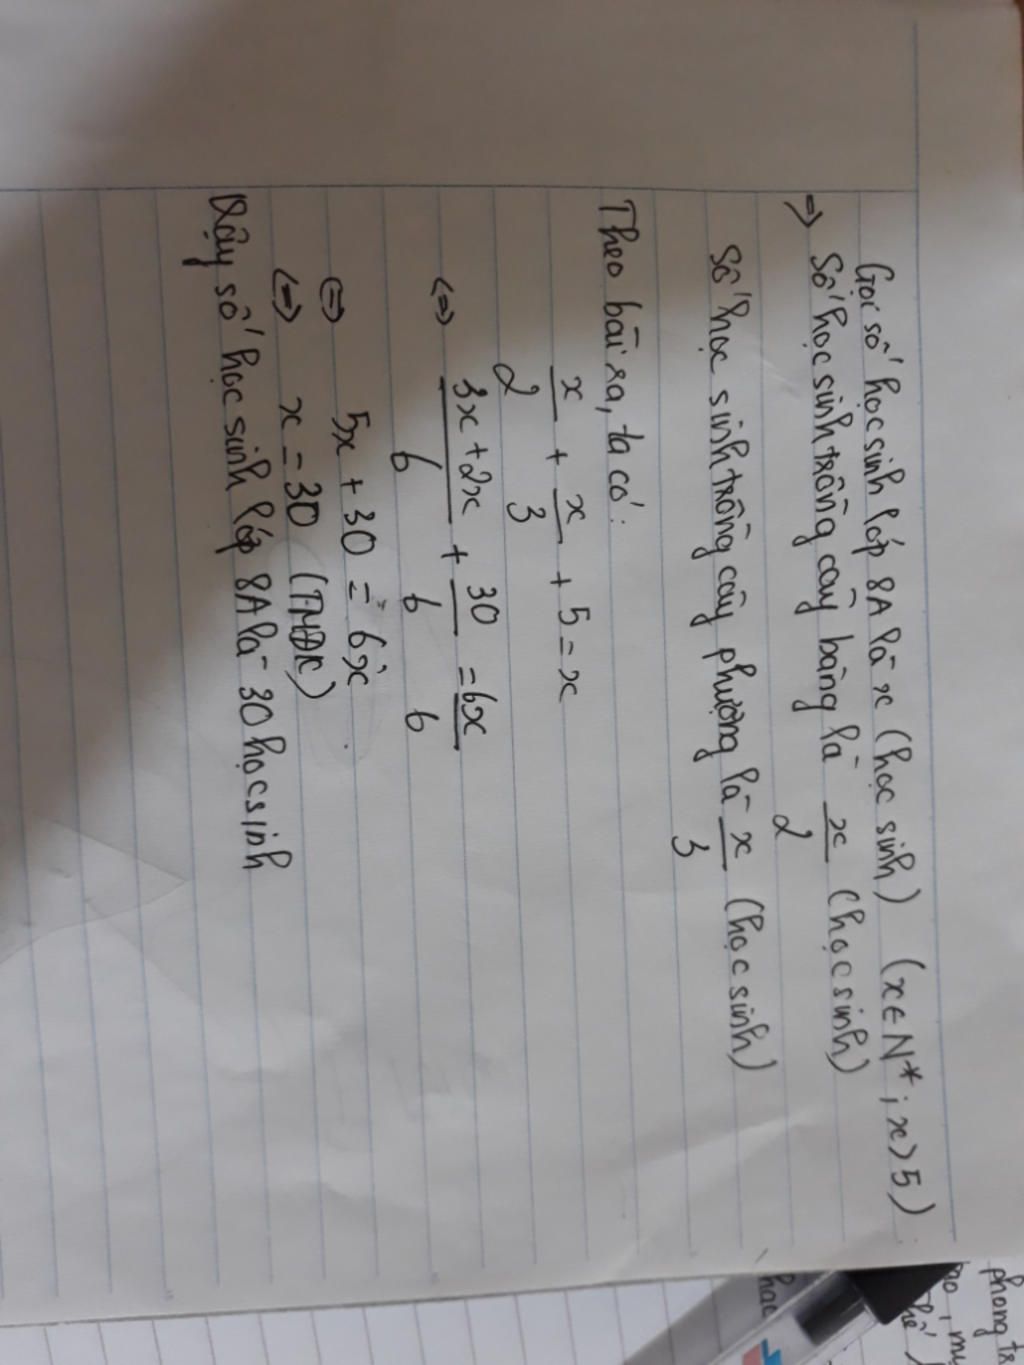 Gọi số học sinh lớp 8A là x (học sinh) (x ∈ N*; x > 5)
=> Số học sinh trồng cây bàng là x/2 (học sinh)
Số học sinh trồng cây phượng là x/3 (học sinh)
Theo bài ra, ta có:
x/2 + x/3 + 5 = x
<=> (3x + 2x)/6 + 30/6 = 6x/6
<=> 5x + 30 = 6x
<=> x = 30 (TMĐK)
Vậy số học sinh lớp 8A là 30 học sinh
phong